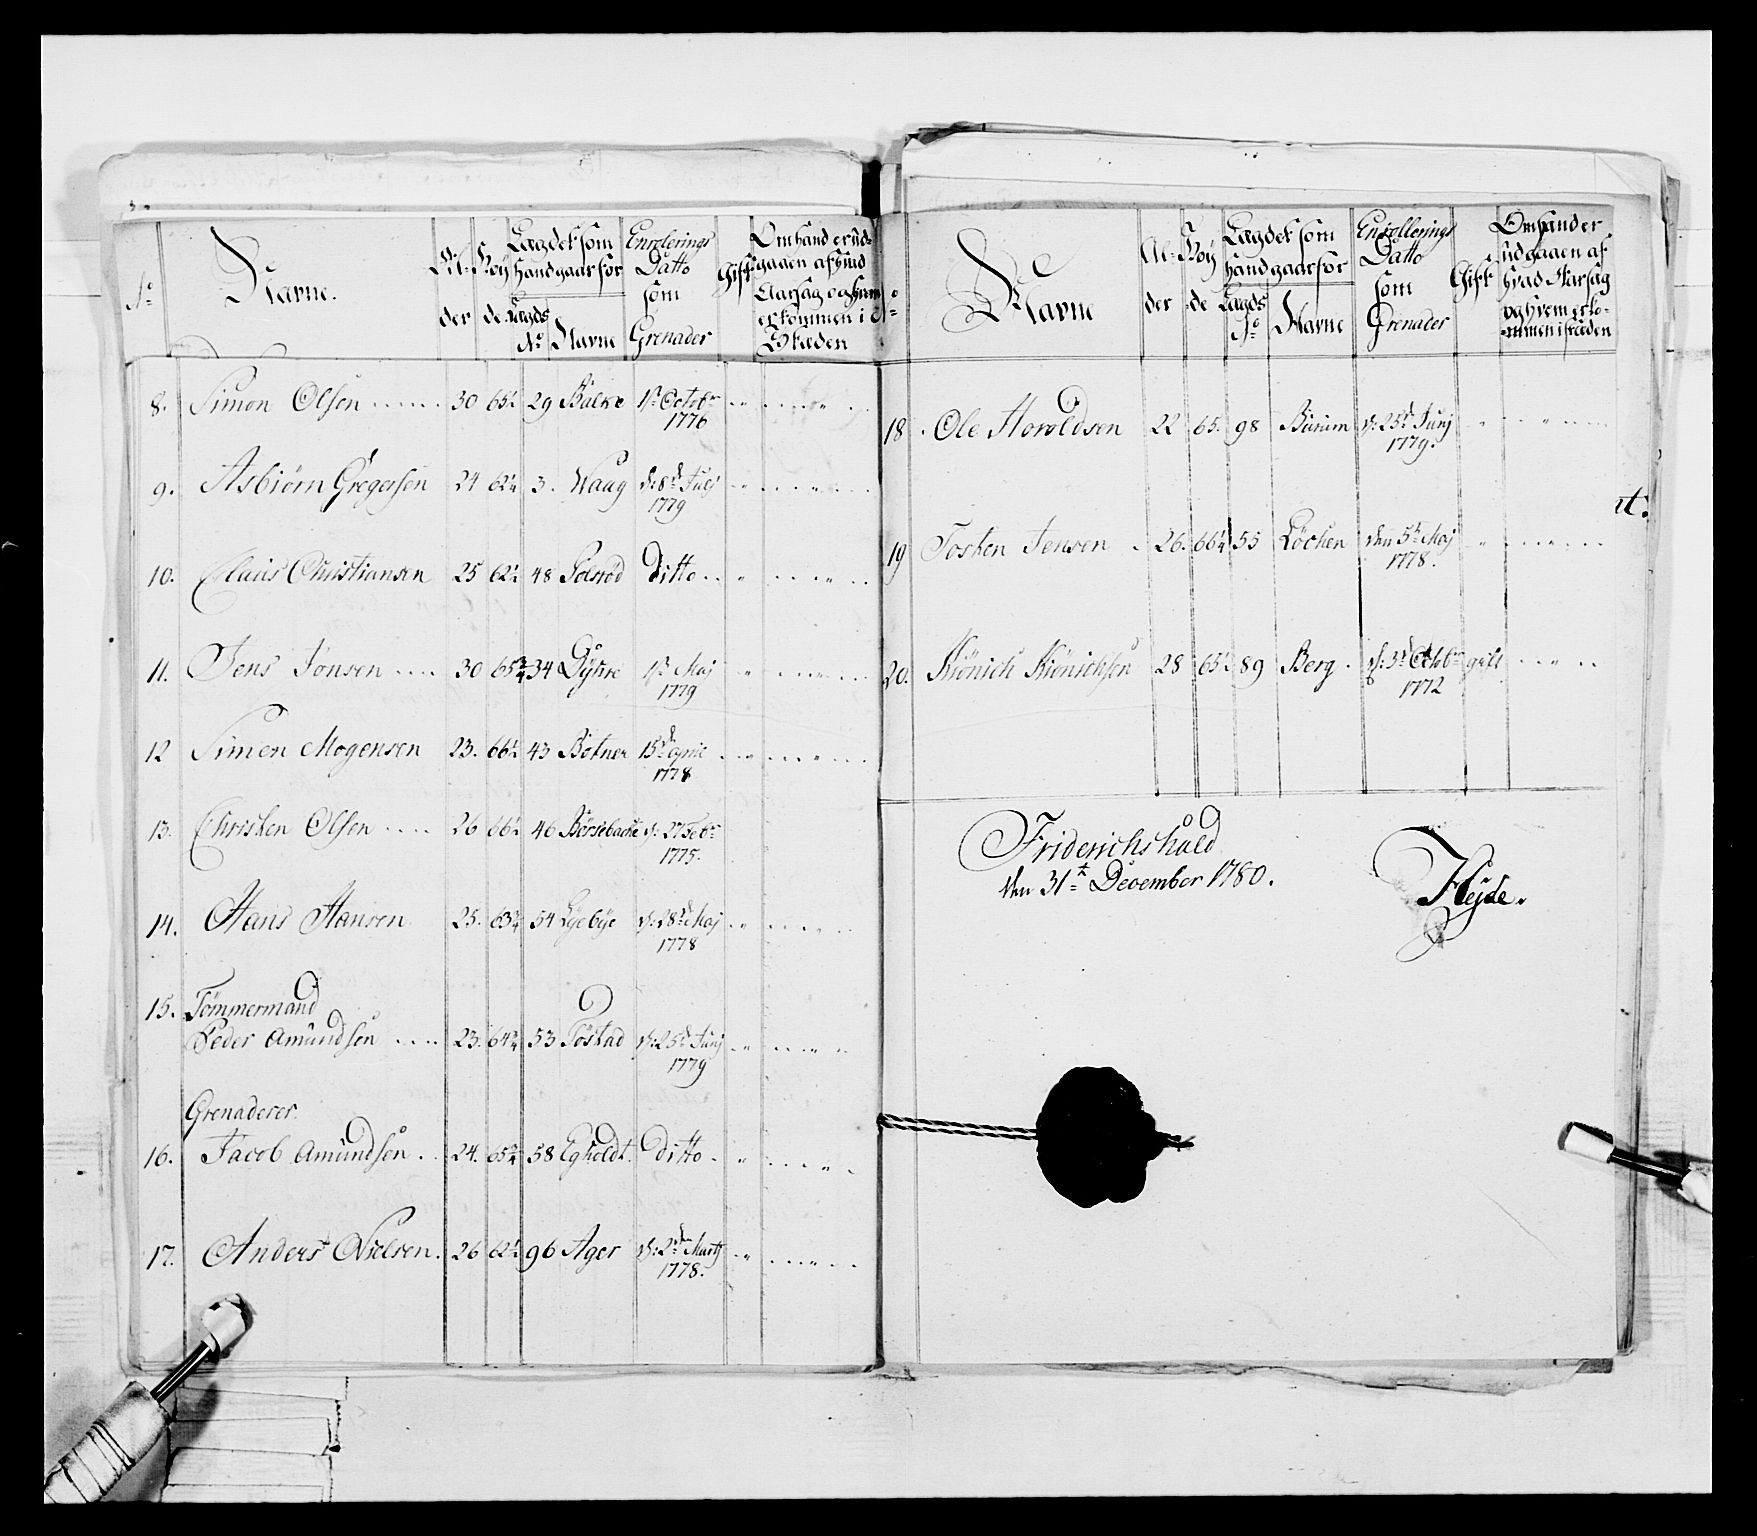 No
Navne.
Al-
der
Høy
de
Lagdet som
hand gaar for
Lagds
No Navne
Enrolerings
Datto
som
Grenader
Gift
Om hand er ud-
gaaen af hvad
Aarsag og hvem
er kommen i
Stæden
8. Simon Olsen ...... 30 65½ 29 Balke 1st Octobr
1776
9. Asbiørn Gregersen 24 62¼ 3. Waug d: 8de Julj
1779
10. Claus Christiansen 25 62½ 48 Solsrød Ditto ..
11. Jens Jonsen .... 30 65¾ 34 Dyhre 1st Maj
1779
12 Simen Mogensen 23. 66½ 43 Bøtner 15de
1778
13. Christen Olsen .... 26 66½ 46 Børsebache d: 27 Febr
1775.
14. Hans Hansen 25. 63¼ 54 Lyebye d: 28de Maj
1778
15. Tømmermand
Peder Amundsen .... 23. 64¾ 53 Tostad d: 25de Junj
1779
Grenaderer
16. Jacob Amundsen . . 24. 65¾ 58 Egholdt. Ditto .
17. Anders Nielsen. 26 62½ 96 Ager d: 2den Martj
1778.
No
Navne
Al-
der
Høy
de
Lagdet som
hand gaar for
Lagds
No Navne
Enrollerings
Datto
som
Grenader
Gift
Om hand er
udgaaen af
hvad Aarsag
og hvem er ko-
mmen i stæden
18. Ole Haroldsen 22 65. 98 Burum d: 25de Junj
1779.
19 Tosten Jensen . 26. 66¼ 55 Løchen den 5te Maj
1778.
20. Kiønich Kiønichsen 28 65½ 89 Berg . d: 3de Octobr gift
1772
Friderichshald
den 31te December 1780.
Heyde.